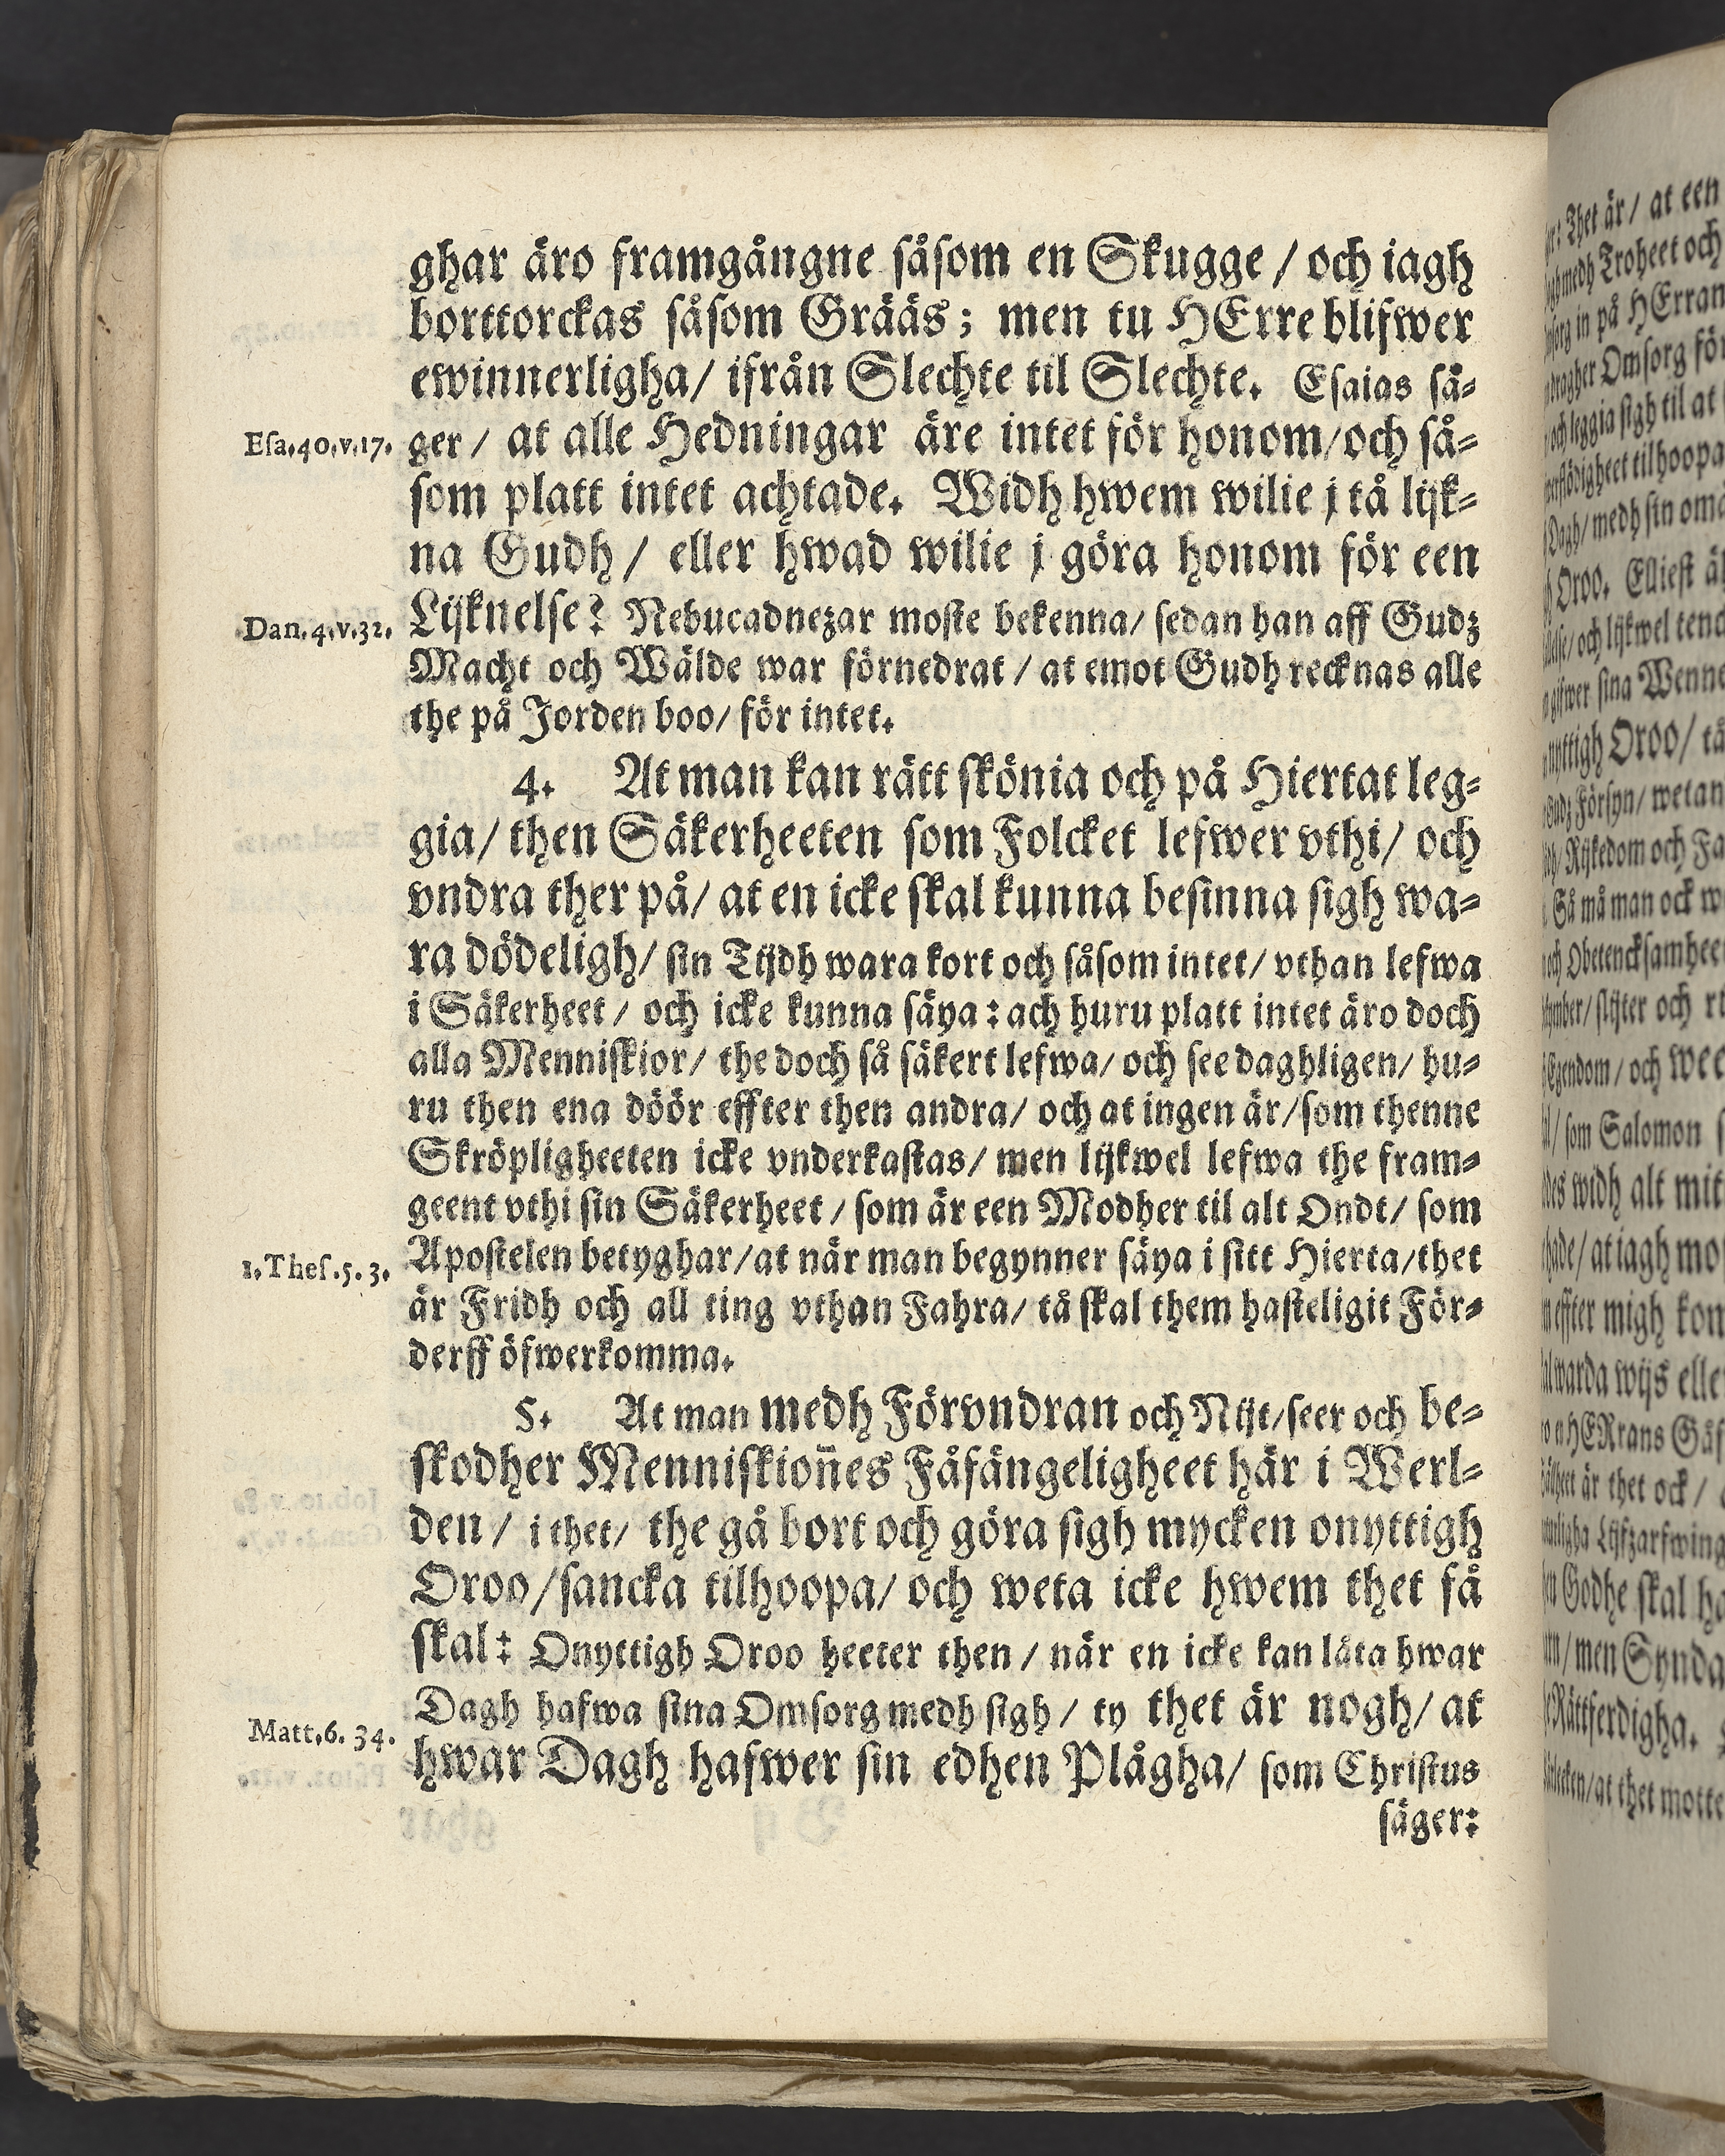 ghar äro framgångne såsom en Skugge / och iagh
borttorckas såsom Grääs; men tu HErre blifwer
ewinnerligha/ ifrån Slechte til Slechte. Esaias sä-
Esa.40.v.17. ger / at alle Hedningar äre intet för honom/och så-
som platt intet achtade. Widh hwem wilie j tå lijk-
na Gudh / eller hwad wilie j göra honom för een
Dan.4.v.32. Lijknelse? Nebucadnezar moste bekenna/ sedan han aff Gudz
Macht och Wälde war förnedrat / at emot Gudh recknas alle
the på Jorden boo/ för intet.
4. At man kan rätt skönia och på Hiertat leg-
gia/ then Säkerheeten som Folcket lefwer vthi/ och
vndra ther på/ at en icke skal kunna besinna sigh wa-
ra dödeligh/ sin Tijdh wara kort och såsom intet/ vthan lefwa
i Säkerheet / och icke kunna säya: ach huru platt intet äro doch
alla Menniskior/ the doch så säkert lefwa/ och see daghligen/ hu-
ru then ena döör effter then andra/ och at ingen är/som thenne
Skröpligheeten icke vnderkastas/ men lijkwel lefwa the fram-
geent vthi sin Säkerheet / som är een Modher til alt Ondt/ som
1.Thes.5.3. Apostelen betyghar/at när man begynner säya i sitt Hierta/thet
är Fridh och all ting vthan Fahra/ tå skal them hasteligit För-
derff öfwerkomma.
5. At man medh Förvndran och Nijt/seer och be-
skodher Menniskion̄es Fåfängeligheet här i Werl-
den / i thet/ the gå bort och göra sigh mycken onyttigh
Oroo/sancka tilhoopa/ och weta icke hwem thet få
skal: Onyttigh Oroo heeter then / när en icke kan låta hwar
Dagh hafwa sina Omsorg medh sigh / ty thet är nogh/ at
Matt.6.34. hwar Dagh hafwer sin edhen Plågha/ som Christus
säger: